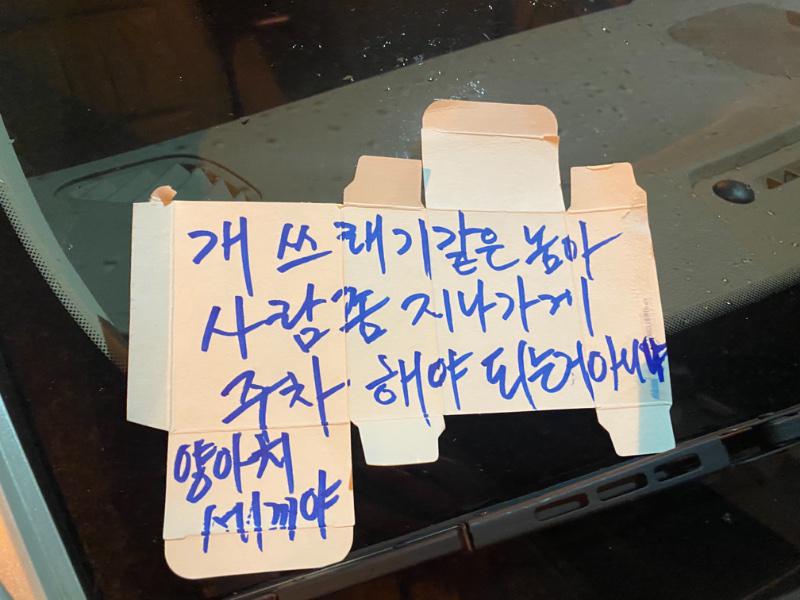 개 쓰래기같은 놈아
사람좀 지나가게
주차 해야 되는거아니냐
양아치
세끼야